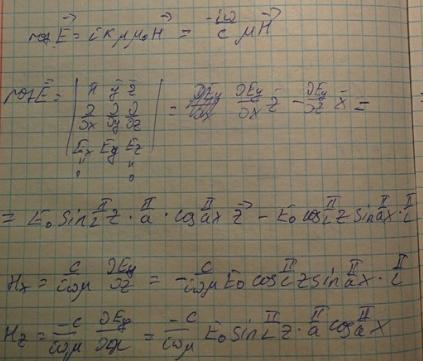 rot E⃗ = iкμμ₀H⃗ = -iω/c μH⃗
rot E⃗ = | x⃗ y⃗ z⃗ | ∂/∂x ∂/∂y ∂/∂z | Ex Ey Ez | = ∂Ey/∂x z⃗ - ∂Ey/∂z x⃗ =
" "
0 0
= E₀ sin π/L z · π/a · cos π/a x z⃗ - E₀ cos π/L z sin π/a x · π/L
Hx = c/iωμ ∂Ey/∂z = -c/iωμ E₀ cos π/L z sin π/a x · π/L
Hz = -c/iωμ ∂Ey/∂x = -c/iωμ E₀ sin π/L z · π/a cos π/a x